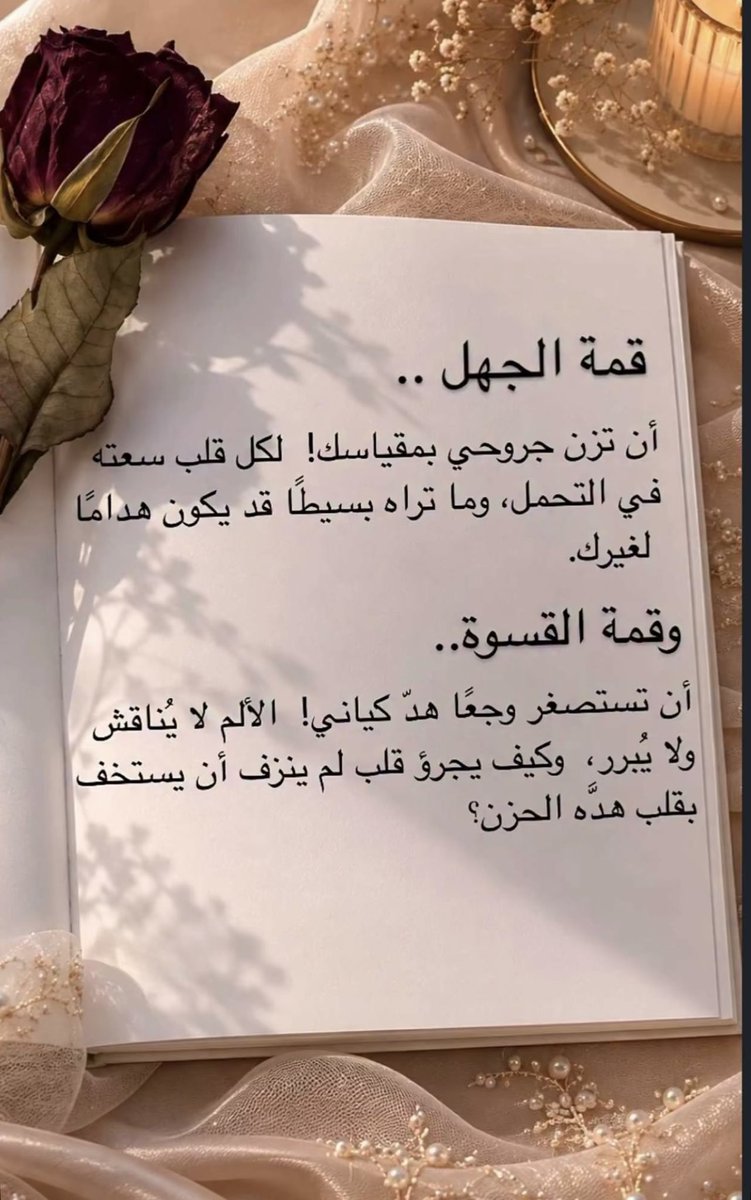 قمة الجهل ..
أن تزن جروحي بمقياسك! لكل قلب سعته
في التحمل، وما تراه بسيطًا قد يكون هدامًا
لغيرك.
وقمة القسوة..
أن تستصغر وجعًا هدّ كياني! الألم لا يُناقش
ولا يُبرر، وكيف يجرؤ قلب لم ينزف أن يستخف
بقلب هدَّه الحزن؟